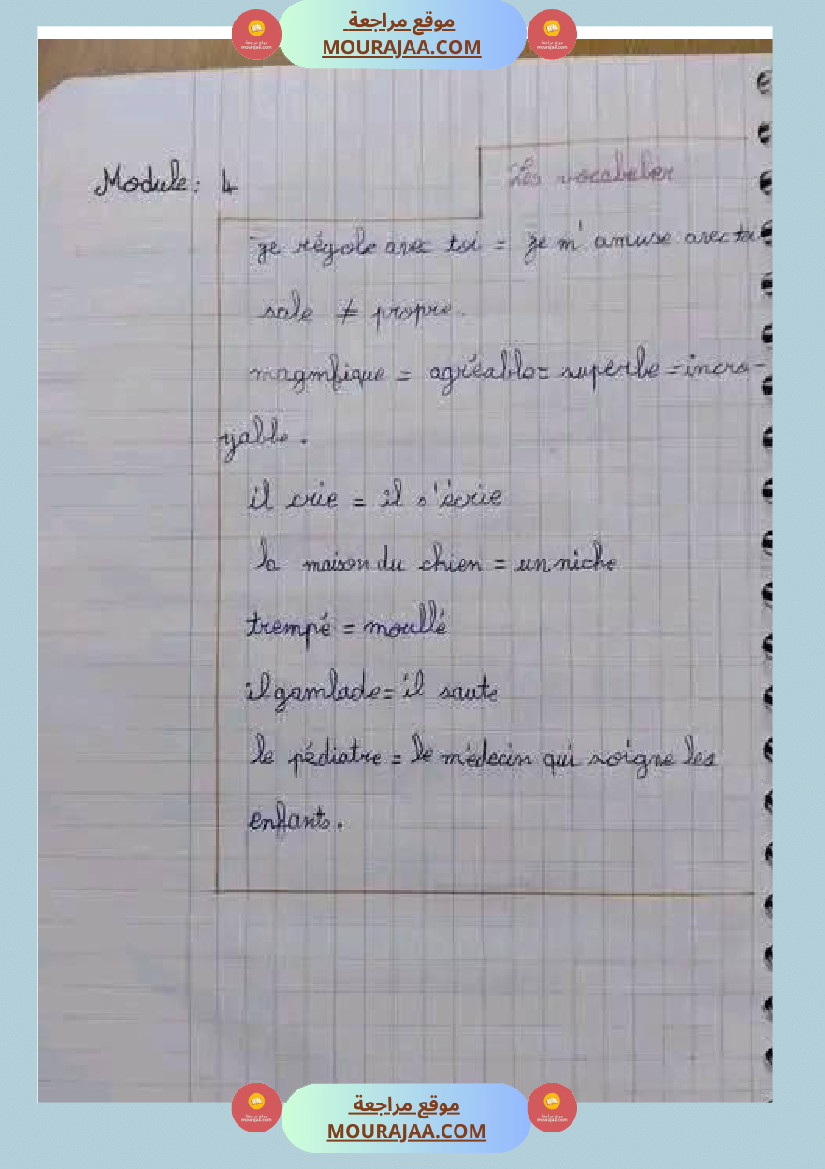 موقع مراجعة
MOURAJAA.COM
Module: 4
Les vocabuler
je régole avec toi = je m'amuse avec toi
sale ≠ propre.
magnifique = agréable = superbe = incro-
yable.
il crie = il s'écrie
la maison du chien = un niche
trempé = moullé
il gamlade = il saute
le pédiatre = le médecin qui soigne les
enfants.
موقع مراجعة
MOURAJAA.COM